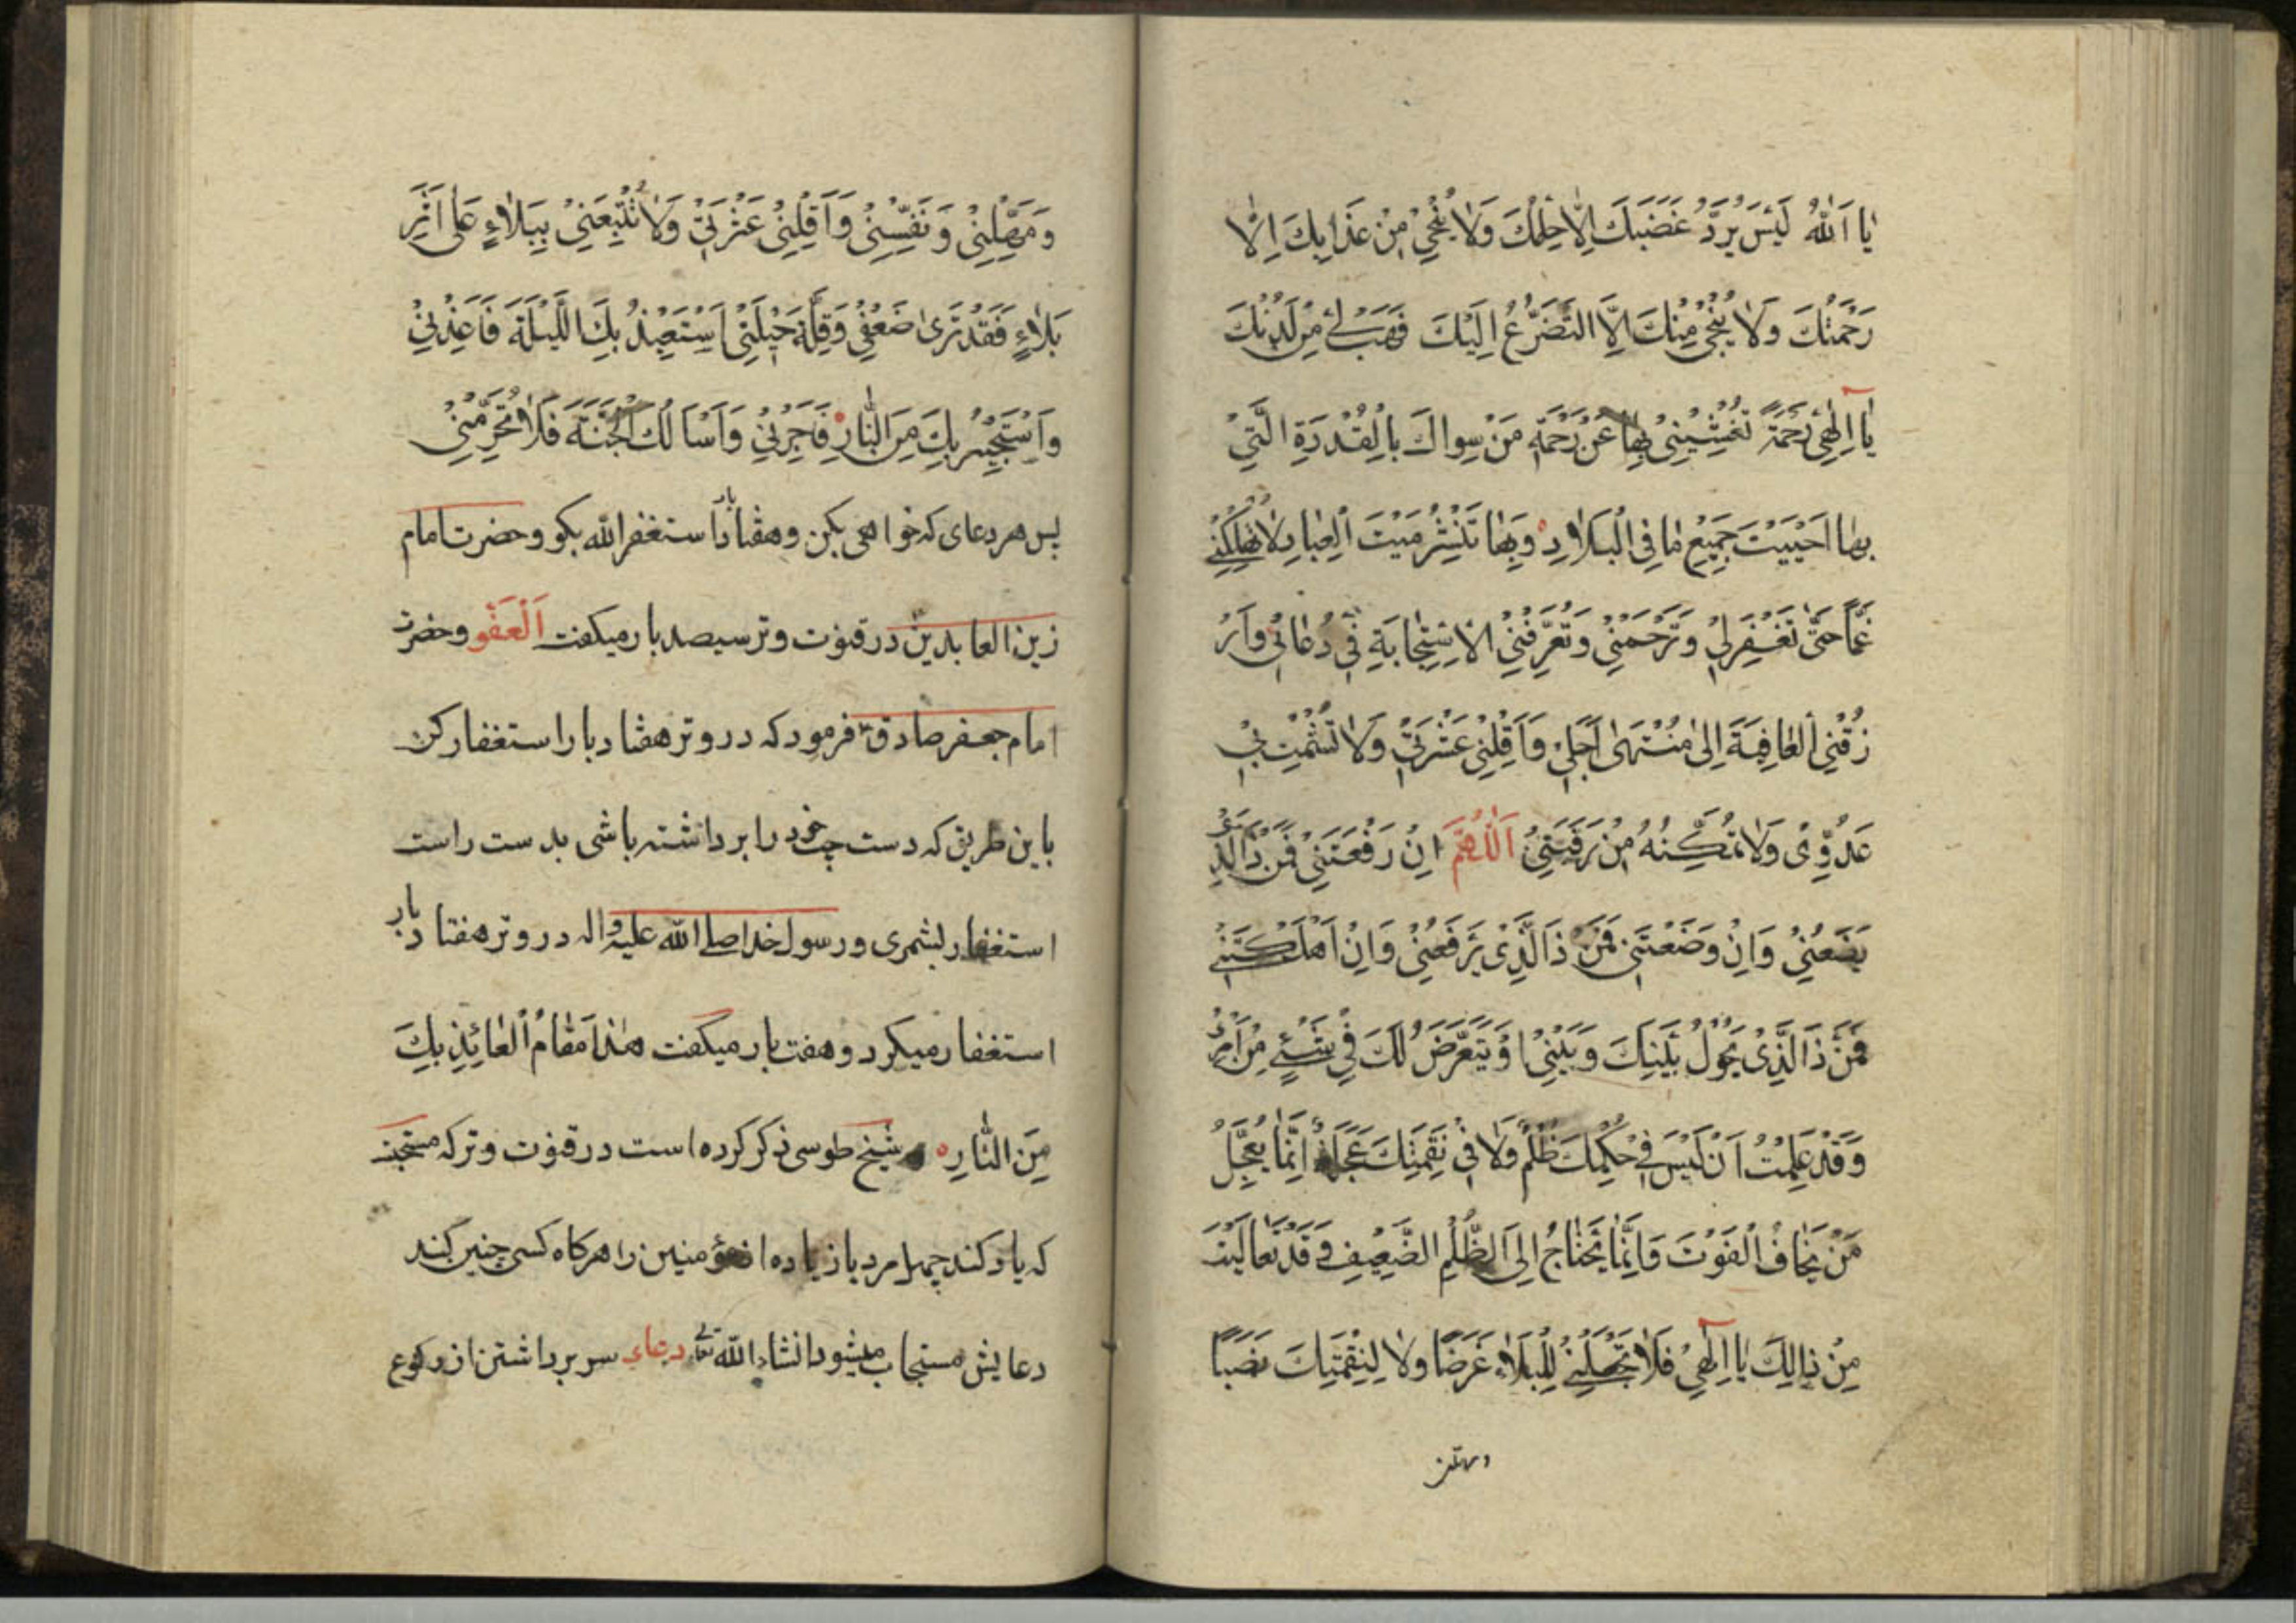 يٰا اَللّٰهُ لَيْسَ يَرُدُّ غَضَبَكَ اِلّٰا حِلْمُكَ وَلٰا يُنْجٖي مِنْ عَذٰابِكَ اِلّٰا
رَحْمَتُكَ وَلٰا يُنْجٖي مِنْكَ اِلَّا التَّضَرُّعُ اِلَيْكَ فَهَبْ لٖي مِنْ لَدُنْكَ
يٰا اِلٰهٖي رَحْمَةً تُغْنٖينٖي بِهٰا عَنْ رَحْمَةِ مَنْ سِواكَ بِالْقُدْرَةِ الَّتٖي
بِهٰا اَحْيَيْتَ جَمٖيعَ مٰا فِي الْبِلٰادِ وَبِهٰا تَنْشُرُ مَيْتَ الْعِبٰادِ لٰا تُهْلِكْنٖي
غَمًّا حَتّٰى تَغْفِرَلٖي وَتَرْحَمَنٖي وَتُعَرِّفَنِي الْاِسْتِجٰابَةَ فٖي دُعٰائٖي وَارْ
زُقْنِي الْعٰافِيَةَ اِلٰى مُنْتَهٰى اَجَلٖي وَاَقِلْنٖي عَثْرَتٖي وَلٰا تُشْمِتْ بٖي
عَدُوّٖي وَلٰا تُمَكِّنْهُ مِنْ رَقَبَتٖي اَللّٰهُمَّ اِنْ رَفَعْتَنٖي فَمَنْ ذَا الَّذٖي
يَضَعُنٖي وَاِنْ وَضَعْتَنٖي فَمَنْ ذَا الَّذٖي يَرْفَعُنٖي وَاِنْ اَهْلَكْتَنٖي
فَمَنْ ذَا الَّذٖي يَحُولُ بَيْنَكَ وَبَيْنٖي اَوْ يَتَعَرَّضُ لَكَ فٖي شَيْءٍ مِنْ اَمْرٖي
وَقَدْ عَلِمْتُ اَنْ لَيْسَ فٖي حُكْمِكَ ظُلْمٌ وَلٰا فٖي نَقِمَتِكَ عَجَلَةٌ اِنَّمٰا يُعَجِّلُ
مَنْ يَخٰافُ الْفَوْتَ وَاِنَّمٰا يَحْتٰاجُ اِلَى الظُّلْمِ الضَّعٖيفُ وَقَدْ تَعٰالَيْتَ
مِنْ ذٰالِكَ يٰا اِلٰهٖي فَلٰا تَجْعَلْنٖي لِلْبَلٰاءِ غَرَضًا وَلٰا لِنِقْمَتِكَ نَصَبًا
وَمَهِّلْنٖي وَنَفِّسْنٖي وَاَقِلْنٖي عَثْرَتٖي وَلٰا تُتْبِعْنٖي بِبَلٰاءٍ عَلٰى اَثَرِ
بَلٰاءٍ فَقَدْ تَرٰى ضَعْفٖي وَقِلَّةَ حٖيلَتٖي اَسْتَعٖيذُ بِكَ اللَّيْلَةَ فَاَعِذْنٖي
وَاَسْتَجٖيرُ بِكَ مِنَ النّٰارِ فَاَجِرْنٖي وَاَسْاَلُكَ الْجَنَّةَ فَلٰا تَحْرِمْنٖي
پس هر دعای که خواهی بکن وهفتاد بار استغفرالله بکو وحضرت امام
زین العابدین در قنوت وتر سیصد بار میکفت اَلْعَفْو وحضرت
امام جعفر صادق فرمود که در وتر هفتاد بار استغفار کن
باین طریق که دست چپ خود را برداشته باشی بدست راست
استغفار بشمری ورسول خدا صلی الله علیه واله در وتر هفتاد بار
استغفار میکرد وهفت بار میکفت هٰذا مَقٰامُ الْعٰائِذِ بِكَ
مِنَ النّٰارِ شیخ طوسی ذکر کرده است در قنوت وتر که مستحبّ
که یاد کند چهل مرد یا زیاده از مؤمنین را هرکاه کسی چنین کند
دعایش مستجاب میشود انشاء الله تعالی دعاء سر برداشتن از رکوع